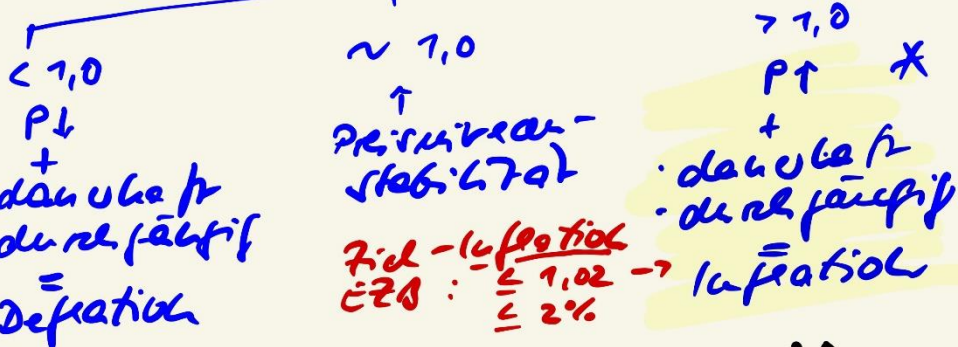 < 1,0
P↓
+
dauerhaft
durchgängig
=
Deflation
~ 1,0
↑
Preisniveau-
stabilität
Ziel-Inflation
EZB : ≤ 1,02 →
≤ 2%
> 1,0
P↑ *
+
· dauerhaft
· durchgängig
=
Inflation